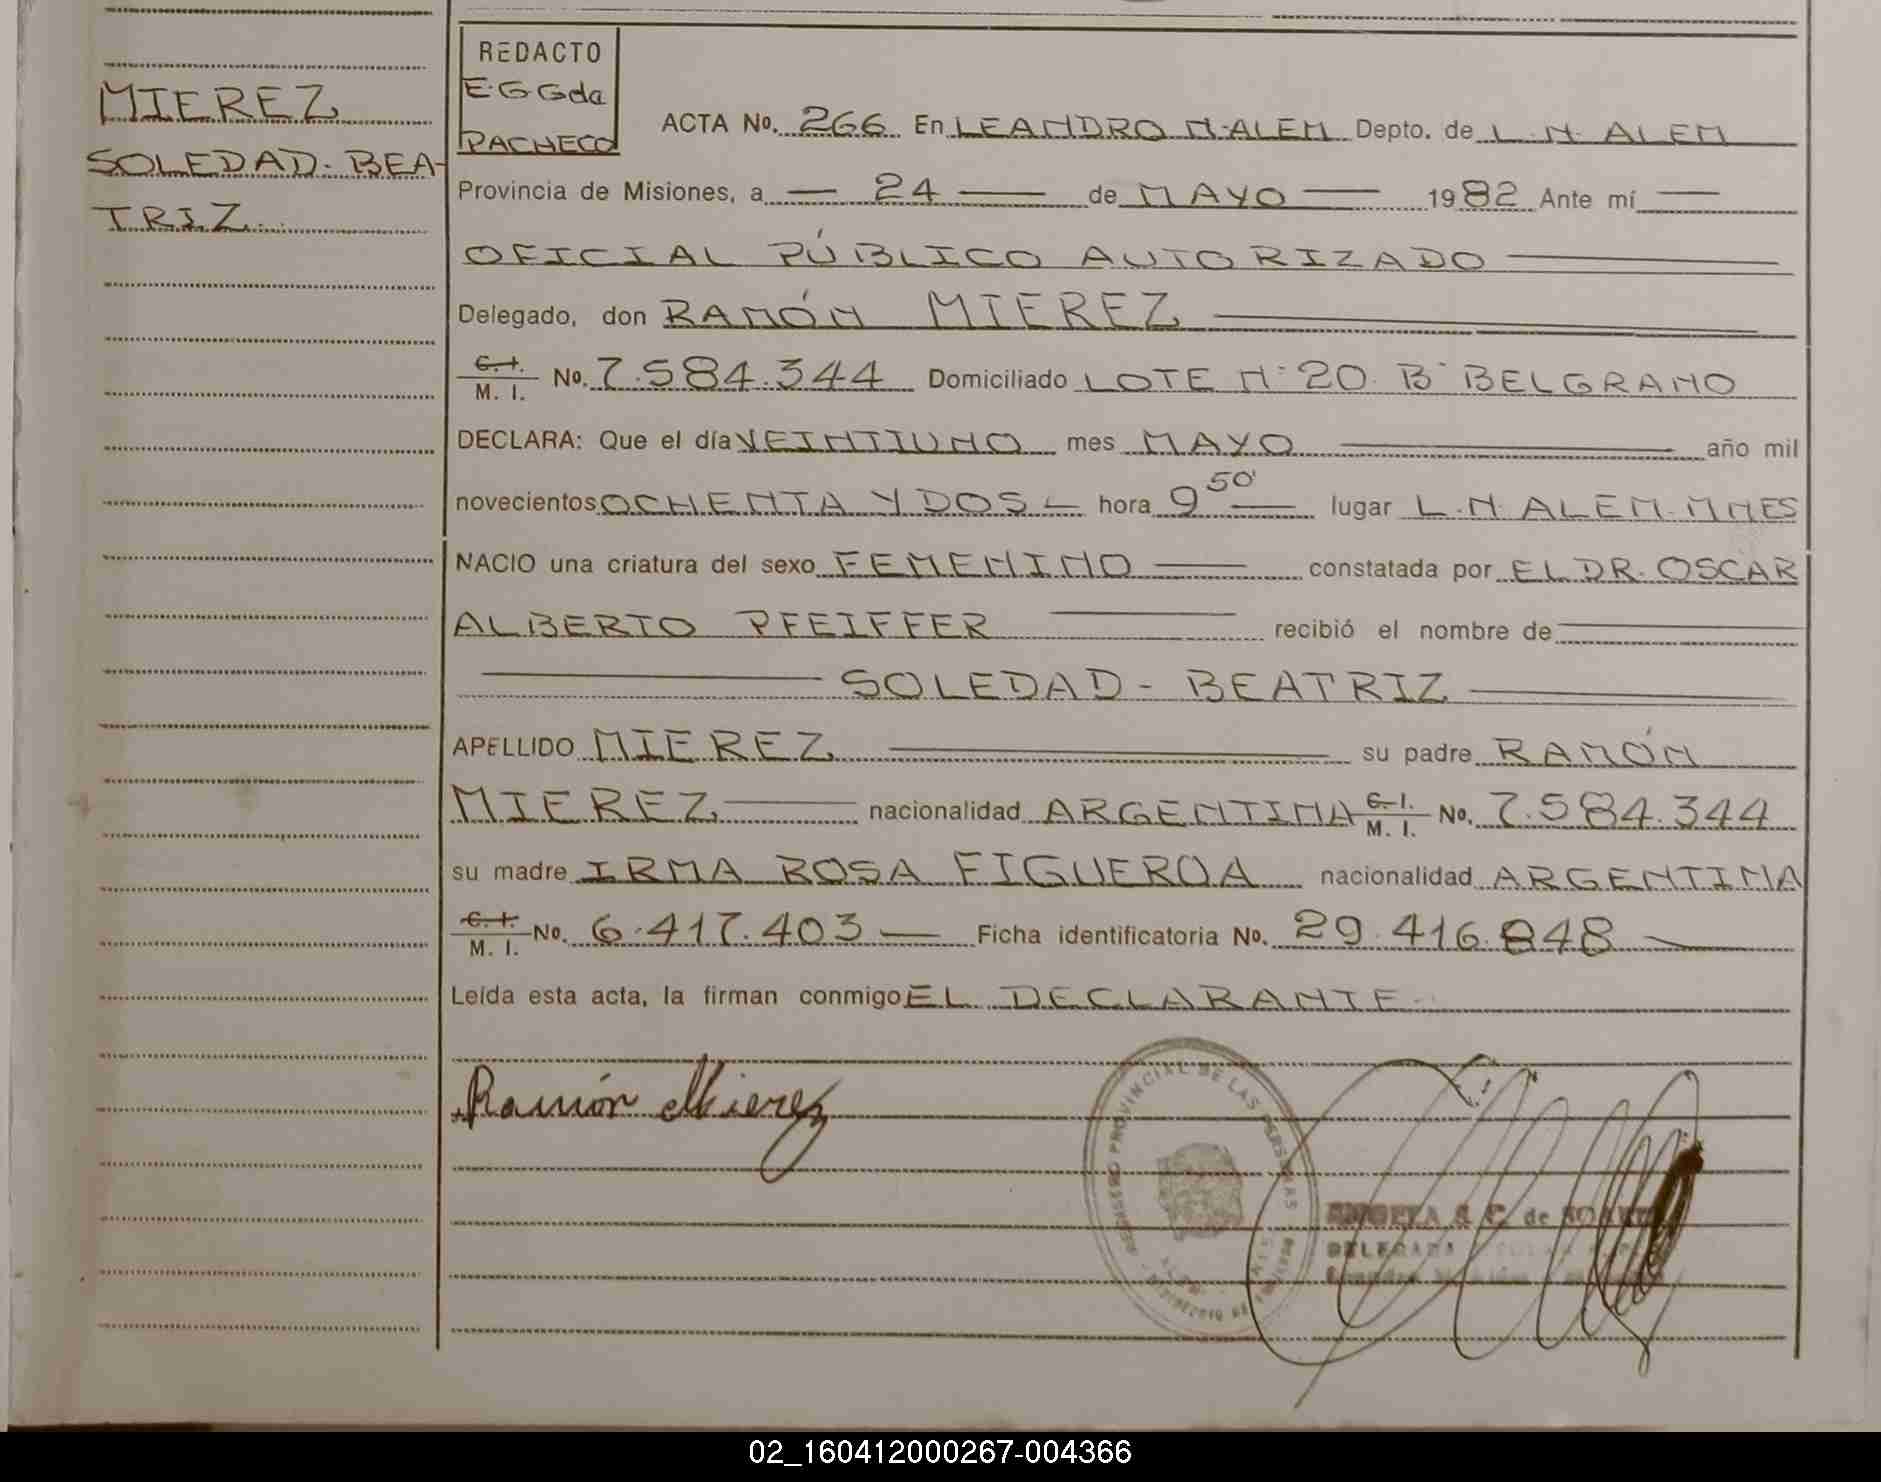 MIEREZ
SOLEDAD-BEA-
TRIZ
REDACTO
E.G Gda
PACHECO
ACTA No. 266 En LEANDRO N. ALEM Depto. de L. N. ALEM
Provincia de Misiones, a 24 de MAYO 1982 Ante mí
OFICIAL PÚBLICO AUTORIZADO
Delegado, don RAMÓN MIEREZ
C. I.
M. I. No. 7.584.344 Domiciliado LOTE Nº 20. Bº BELGRANO
DECLARA: Que el día VEINTIUNO mes MAYO año mil
novecientos OCHENTA Y DOS hora 9 50' lugar L. N. ALEM. MNES
NACIO una criatura del sexo FEMENINO constatada por EL DR. OSCAR
ALBERTO PFEIFFER recibió el nombre de
SOLEDAD - BEATRIZ
APELLIDO MIEREZ su padre RAMÓN
MIEREZ nacionalidad ARGENTINA C. I. M. I. No. 7.584.344
su madre IRMA ROSA FIGUEROA nacionalidad ARGENTINA
C. I.
M. I. No. 6.417.403 Ficha identificatoria No. 29.416.848
Leída esta acta, la firman conmigo EL DECLARANTE
Ramón Mierez
PROVINCIAL DE LAS PERSONAS
de
02_160412000267-004366